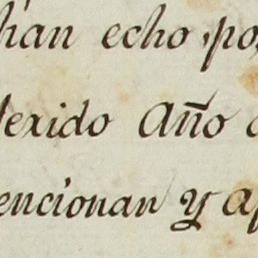 han echo, po
lexido Año
encionan y ap